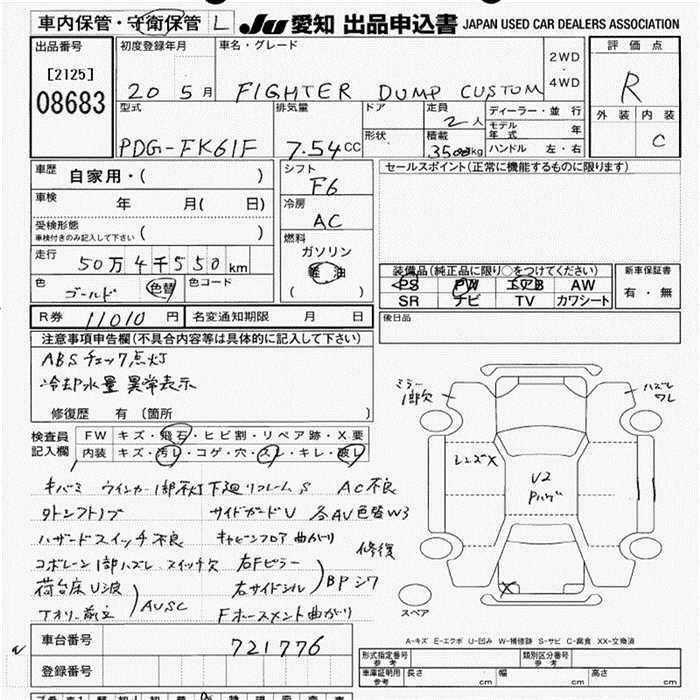 車内保管・守衛保管 L JU 愛知 出品申込書 JAPAN USED CAR DEALERS ASSOCIATION
出品番号 初度登録年月 車名・グレード 評価点
[2125] 20 5月 FIGHTER DUMP CUSTOM 2WD・4WD R
08683 型式 排気量 ドア 定員 2人 ディーラー・並行 外装 内装
PDG-FK61F 7.54CC 形状 積載 3500kg モデル年式 年 C
ハンドル 左・右
車歴 自家用・( ) シフト F6 セールスポイント(正常に機能するものに限ります)
車検 年 月( 日) 冷房 AC
受検形態 車検付きのみ記入して下さい ( )
燃料 ガソリン
軽油
( )
走行 50万4千550km
装備品(純正品に限り○をつけてください) 新車保証書
PS PW エアB AW 有・無
SR ナビ TV カワシート
色 ゴールド 色替 色コード
後日品
R券 11010円 名変通知期限 月 日
注意事項申告欄(不具合内容等は具体的に記入して下さい)
ABSチェック点灯
冷却水量 異常表示
修復歴 有〔箇所 〕
ミラー1部欠
ハズレ ワレ
検査員記入欄 FW キズ・飛石・ヒビ割・リペア跡・X要
内装 キズ・汚レ・コゲ・穴・スレ・キレ・破レ
レンズX
V2
Pハゲ
キバミ ウインカー1部不灯 下廻リフレームS AC不良
タトンフトノブ サイドガードU 各AU色替W3
ハザードスイッチ不良 キャビンフロア曲がり 修復
コボレーン1部ハズレ スイッチ欠 右Fピラー
荷台床U波 右サイドシル BPシワ
アオリ前立 AUSC Fホースメント曲がり
X
スペア
車台番号 721776
A-キズ E-エクボ U-凹み W-補修跡 S-サビ C-腐食 XX-交換済
登録番号
形式指定番号 参考 類別区分番号 参考
車庫証明用 参考 長さ cm 幅 cm 高さ cm